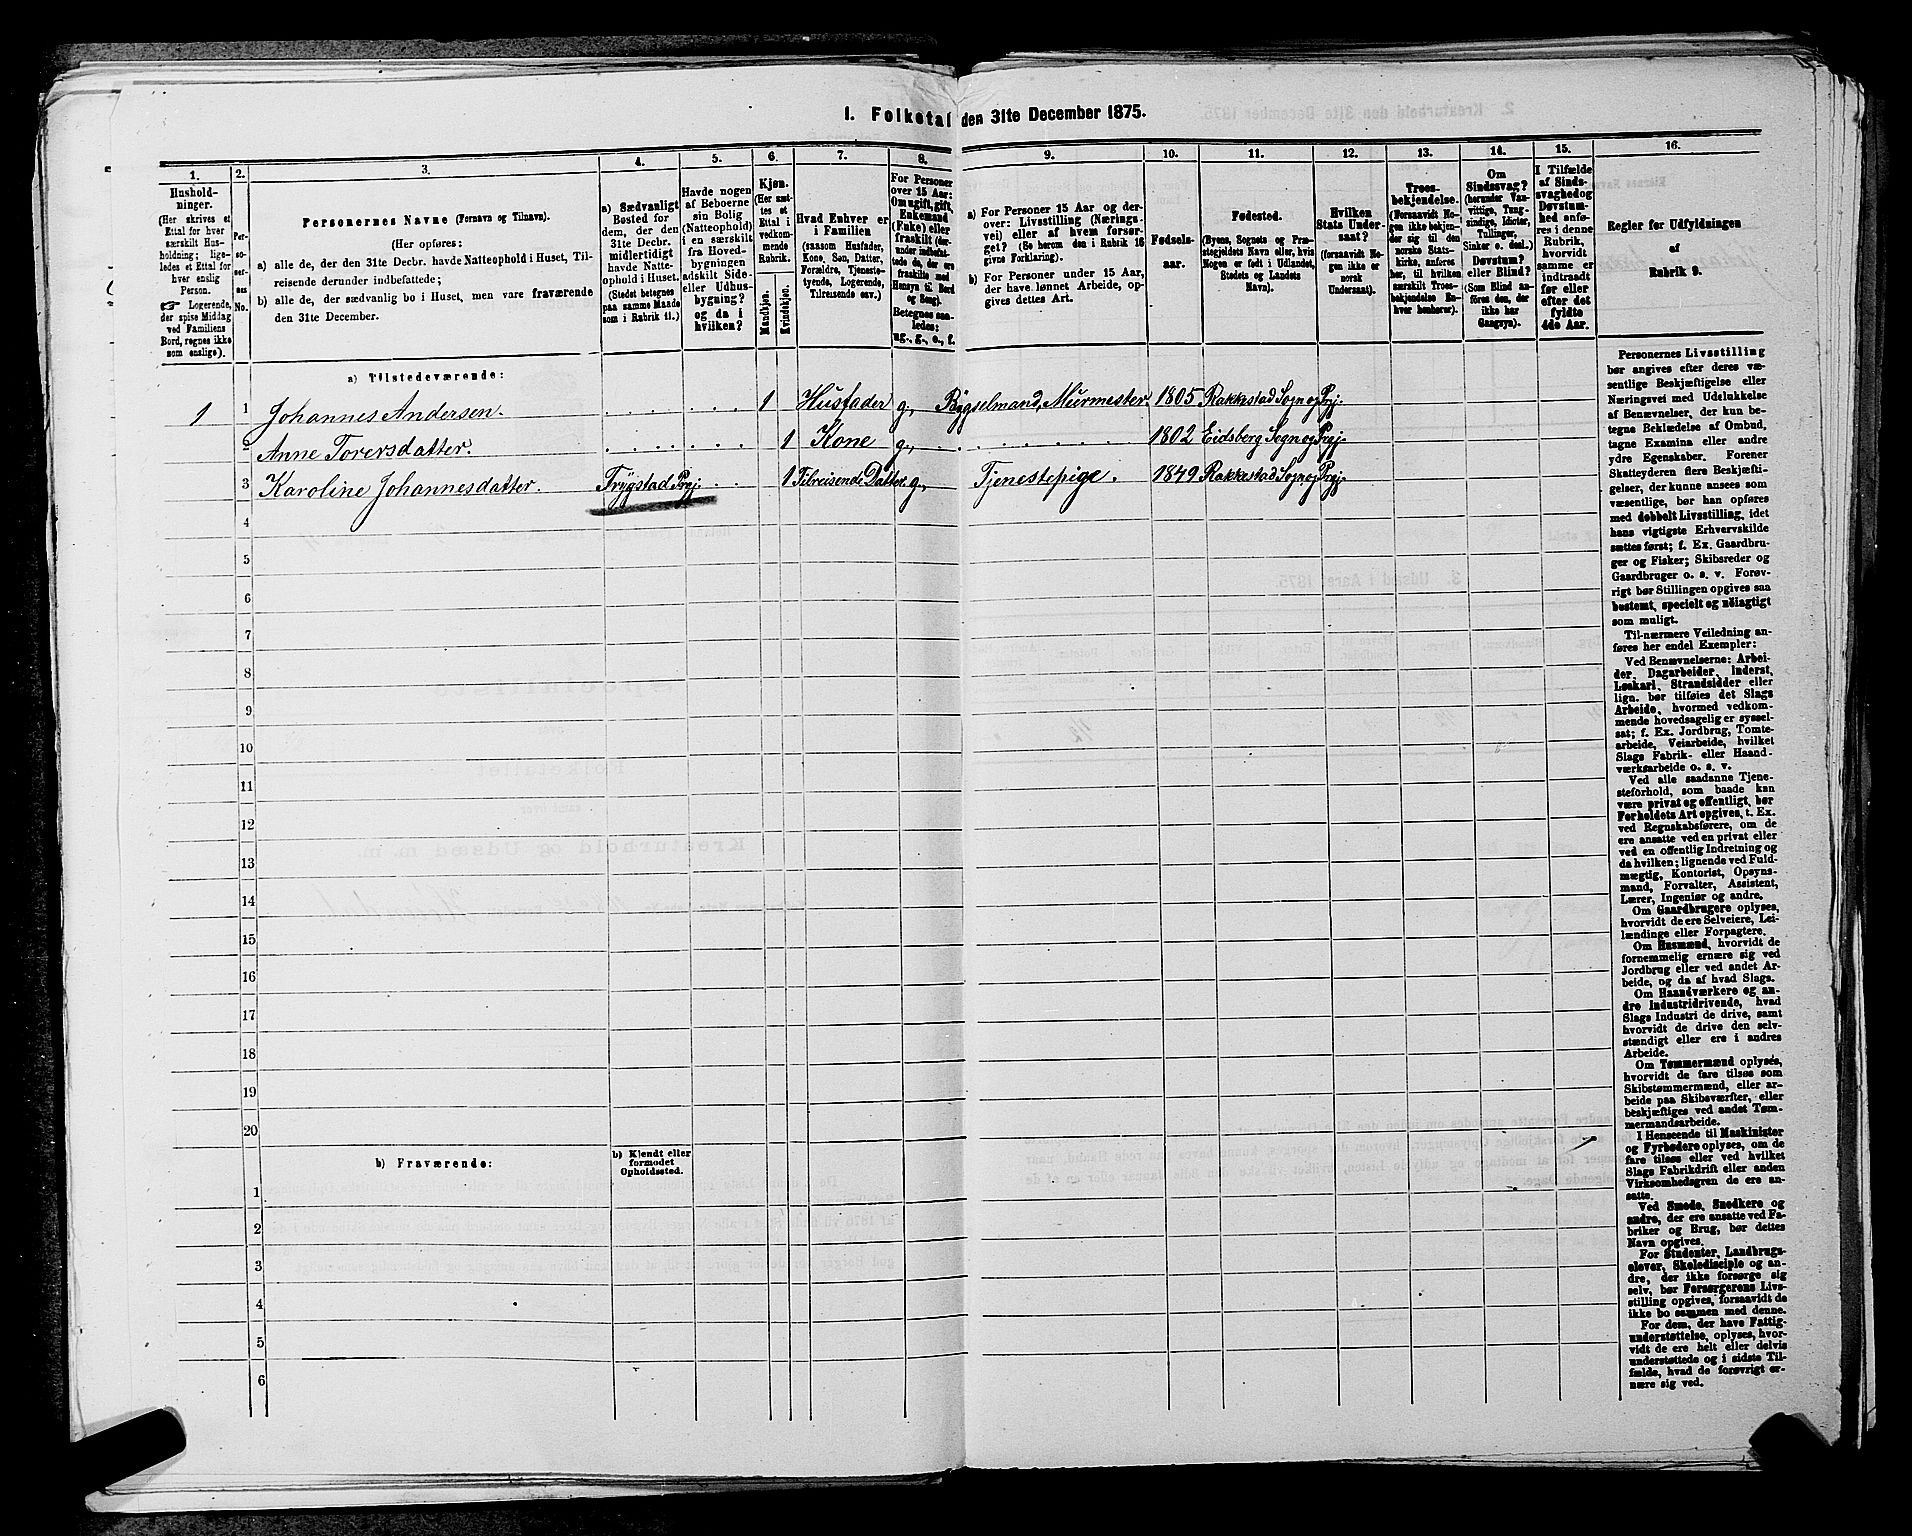 I. Folketal den 31te December 1875.
1. 2. 3. 4. 5. 6. 7. 8. 9. 10. 11. 12. 13. 14. 15. 16.
Hushold-
ninger.
(Her skrives et
Ettal for hver
særskilt Hus-
holdning; lige-
ledes et Ettal for
hver enslig
Person.
☞ Logerende,
der spise Middag
ved Familiens
Bord, regnes ikke
som enslige).
Per-
soner-
nes
No.
Personernes Navne (Fornavn og Tilnavn).
(Her opføres:
a) alle de, der den 31te Decbr. havde Natteophold i Huset, Til-
reisende derunder indbefattede;
b) alle de, der sædvanlig bo i Huset, men vare fraværende
den 31te December.
a) Sædvanligt
Bosted for
dem, der den
31te Decbr.
midlertidigt
havde Natte-
ophold i Huset.
(Stedet betegnes
paa samme Maade
som i Rubrik 11.)
Havde nogen
af Beboerne
sin Bolig
(Natteophold)
i en særskilt
fra Hoved-
bygningen
adskilt Side-
eller Udhus-
bygning?
og da i
hvilken?
Kjøn.
(Her sæt-
tes et
Ettal i
vedkom-
mende
Rubrik.
Mandkjøn.
Kvindekjøn.
Hvad Enhver er
i Familien
(saasom Husfader,
Kone, Søn, Datter,
Forældre, Tjeneste-
tyende, Logerende,
Tilreisende osv.)
For Personer
over 15 Aar:
Om ugift, gift,
Enkemand
(Enke) eller
fraskilt (der-
under indbefat-
tede de, der ere
fraskilte med
Hensyn til Bord
og Seng).
Betegnes saa-
ledes:
ug., g., e., f.
a) For Personer 15 Aar og der-
over: Livsstilling (Nærings-
vei) eller af hvem forsør-
get? (Se herom den i Rubrik 16
givne Forklaring).
b) For Personer under 15 Aar,
der have lønnet Arbeide, op-
gives dettes Art.
Fødsels-
aar.
Fødested.
(Byens, Sognets og Præ-
stegjeldets Navn eller, hvis
Nogen er født i Udlandet,
Stedets og Landets
Navn).
Hvilken
Stats Under-
saat?
(forsaavidt No-
gen ikke er
norsk
Undersaat).
Troes-
bekjendelse.
(Forsaavidt No-
gen ikke bekjen-
der sig til den
norske Stats-
kirke, anføres
her, til hvilken
særskilt Troes-
bekjendelse En-
hver henhører).
Om
Sindssvag?
(herunder Van-
vittige, Tung-
sindige, Idioter,
Tullinger,
Sinker o. desl.)
Døvstum?
eller Blind?
(Som Blind an-
føres den, der
ikke har
Gangsyn).
I Tilfælde
af Sinds-
svaghed og
Døvstum-
hed anfø-
res i denne
Rubrik,
hvorvidt
samme er
indtraadt
før eller
efter det
fyldte
4de Aar.
Regler for Udfyldningen
af
Rubrik 9.
a) Tilstedeværende:
1 1 Johannes Andersen. 1 Husfader g, Bygselmand, Murmester. 1805 Rakkestad Sogn og Prgj.
2 Anne Torersdatter. 1 Kone g, 1802 Eidsberg Sogn og Prgj.
3 Karoline Johannesdatter. Trygstad Prgj. 1 Tilreisende Datter. g, Tjenestepige. 1849 Rakkestad Sogn og Prgj.
4
5
6
7
8
9
10
11
12
13
14
15
16
17
18
19
20
b) Fraværende:
b) Kjendt eller
formodet
Opholdssted.
1
2
3
4
5
6
Personernes Livsstilling
bør angives efter deres væ-
sentlige Beskjæftigelse eller
Næringsvei med Udelukkelse
af Benævnelser, der kun be-
tegne Beklædelse af Ombud,
tagne Examina eller andre
ydre Egenskaber. Forener
Skatteyderen flere Beskjæfti-
gelser, der kunne ansees som
væsentlige, bør han opføres
med dobbelt Livsstilling, idet
hans vigtigste Erhvervskilde
sættes først; f. Ex. Gaardbru-
ger og Fisker; Skibsreder og
Gaardbruger o. s. v. Forøv-
rigt bør Stillingen opgives saa
bestemt, specielt og nøiagtigt
som muligt.
Til nærmere Veiledning an-
føres her endel Exempler:
Ved Benævnelserne: Arbei-
der, Dagarbeider, Inderst,
Løskarl, Strandsidder eller
lign. bør tilføies det Slags
Arbeide, hvormed vedkom-
mende hovedsagelig er syssel-
sat; f. Ex. Jordbrug, Tomte-
arbeide, Veiarbeide, hvilket
Slags Fabrik- eller Haand-
værksarbeide o. s. v.
Ved alle saadanne Tjene-
steforhold, som baade kan
være privat og offentligt, bør
Forholdets Art opgives, t. Ex.
ved Regnskabsførere, om de
ere ansatte ved en privat eller
ved en offentlig Indretning og
da hvilken; lignende ved Fuld-
mægtig, Kontorist, Opsyns-
mand, Forvalter, Assistent,
Lærer, Ingeniør og andre.
Om Gaardbrugere oplyses,
hvorvidt de ere Selveiere, Lei-
lændinge eller Forpagtere.
Om Husmænd, hvorvidt de
fornemmelig ernære sig ved
Jordbrug eller ved andet Ar-
beide, og da af hvad Slags.
Om Haandværkere og an-
dre Industridrivende, hvad
Slags Industri de drive, samt
hvorvidt de drive den selv-
stændigt eller ere i andres
Arbeide.
Om Tømmermænd oplyses,
hvorvidt de fare tilsøs som
Skibstømmermænd, eller ar-
beide paa Skibsværfter, eller
beskjæftiges ved andet Tøm-
mermandsarbeide.
I Henseende til Maskinister
og Fyrbødere oplyses, om de
fare tilsøs eller ved hvilket
Slags Fabrikdrift eller anden
Virksomhedsgren de ere an-
satte.
Ved Smede, Snedkere og
andre, der ere ansatte ved Fa-
briker og Brug, bør dettes
Navn opgives.
For Studenter, Landbrugs-
elever, Skoledisciple og an-
dre, der ikke forsørge sig
selv, bør Forsørgerens Livs-
stilling opgives, forsaavidt de
ikke bo sammen med denne.
For dem, der have Fattig-
understøttelse, oplyses, hvor-
vidt de ere helt eller delvis
understøttede og i sidste Til-
fælde, hvad de forøvrigt er-
nære sig ved.